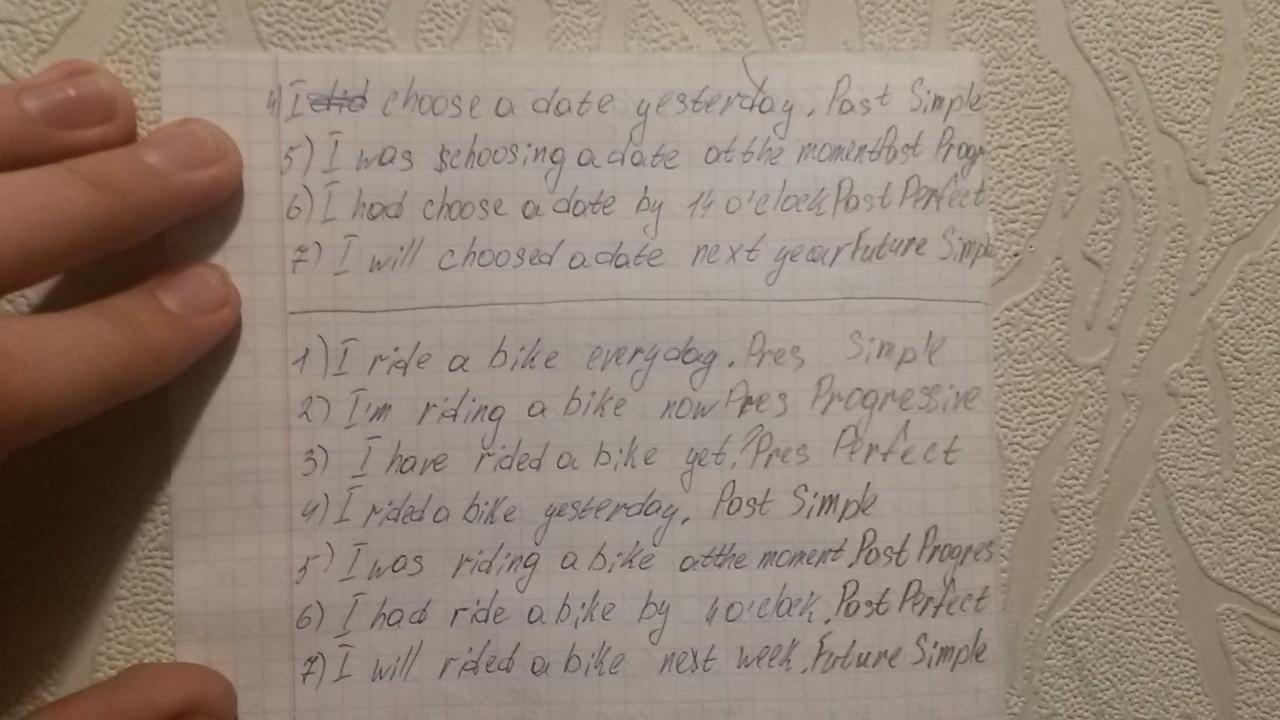 4) I choose a date yesterday. Past Simple
5) I was choosing a date at the moment Past Progr
6) I had choose a date by 14 o'clock Past Perfect
7) I will choosed a date next year Future Simple
1) I ride a bike everyday. Pres Simple
2) I'm riding a bike now Pres Progressive
3) I have rided a bike yet? Pres Perfect
4) I rided a bike yesterday. Past Simple
5) I was riding a bike at the moment Past Progres
6) I had ride a bike by 4 o'clock. Past Perfect
7) I will rided a bike next week. Future Simple